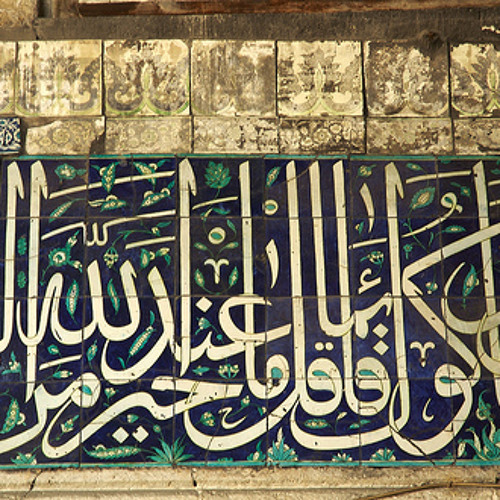 قائما قل ما عند الله خير من